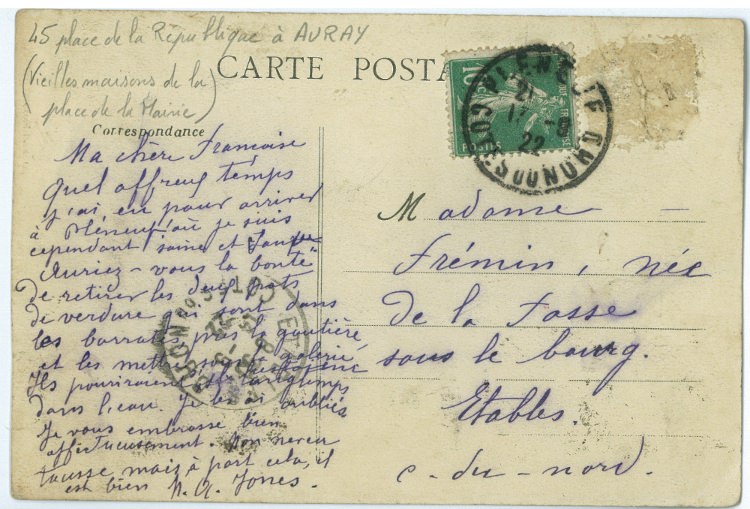 45 place de la République à AURAY
(Vieilles maisons de la
place de la Mairie)
CARTE POSTA
Correspondance
Ma chère Françoise
Quel affreux temps
j'ai eu pour arriver
à Pléneuf, où je suis
cependant saine et sauve
Auriez-vous la bonté
de retirer les deux pots
de verdure qui sont dans
les barrats, près la gouttière
et les mettre sous la galerie
Ils pourriraient
dans l'eau. Je les ai oubliés
Je vous embrasse bien
affectueusement. Mon neveu
tousse, mais à part cela, il
est bien N. A. Jones.
10
POSTES
PLENEUF
COTES DU NORD
21
17 -8
22
Madame
Frémin, née
de la Fosse
sous le bourg.
Etables.
c.-du-nord.